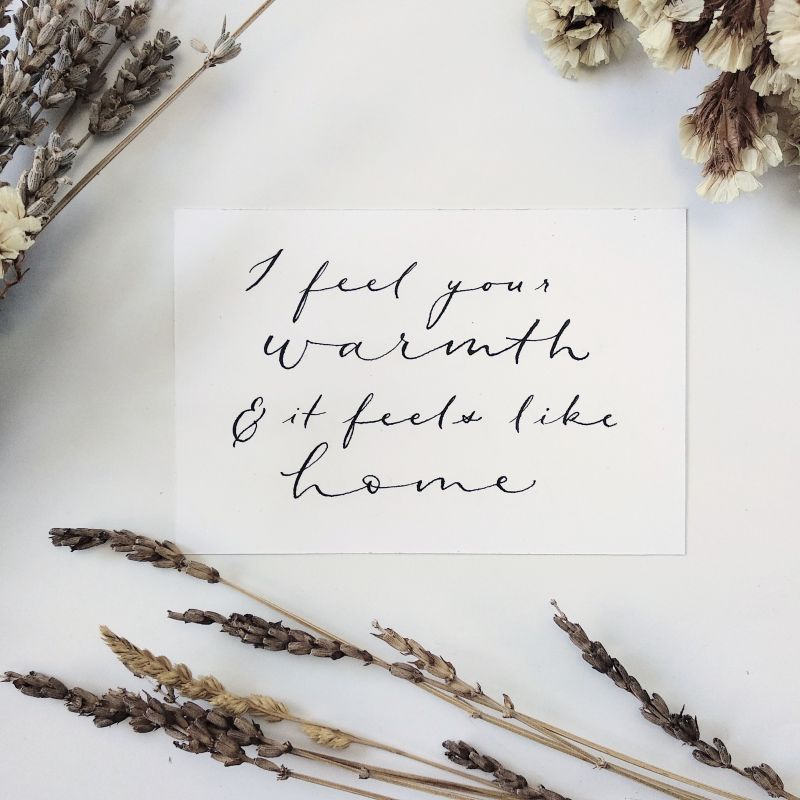 I feel your
warmth
& it feels like
home